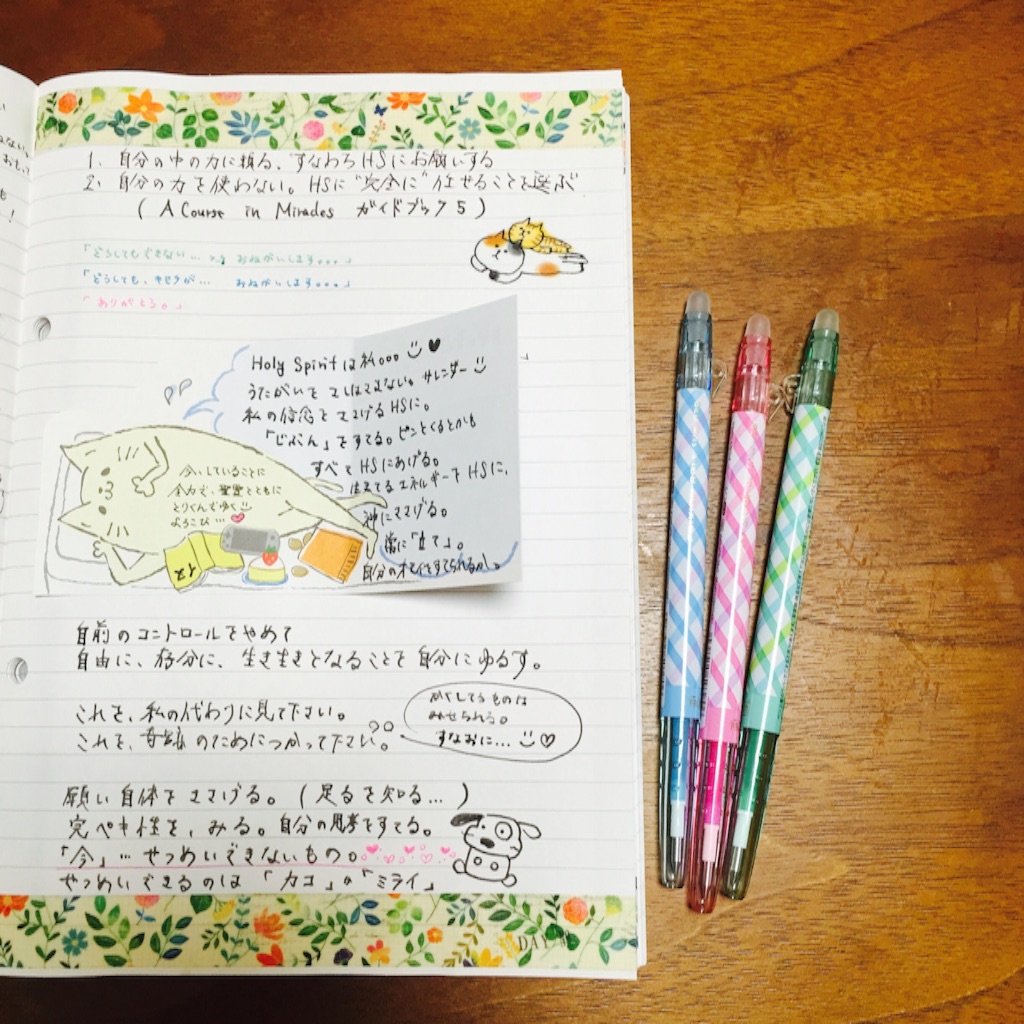 1. 自分の中の力に頼る、すなわちHSにお願いする
2. 自分の力を使わない。HSに"完全に"任せることを選ぶ
(A Course in Miracles ガイドブック5)
「どうしてもできない… おねがいします。。。」
「どうしても、キセキが… おねがいします。。。」
「ありがとう。」
Holy Spiritは私。。。
うたがいを サレンダー
私の信念をささげるHSに。
「じぶん」をすてる。ピンとくるとかも
すべてHSにあげる。
エネルギーをHSに、
神にささげる。
常に「立て」。
自分の
今、していることに
全力で、聖霊とともに
とりくんでゆく
よろこび…
12
自前のコントロールをやめて
自由に、存分に、生き生きとなることを自分にゆるす。
これを、私の代わりに見て下さい。
これを、奇蹟のためにつかって下さい。
かくしてるものは
みせられる。
すなおに…
願い自体をささげる。(足るを知る…)
完ペキ性を、みる。自分の思考をすてる。
「今」…せつめいできないもの。
せつめいできるのは「カコ」か「ミライ」
DAY